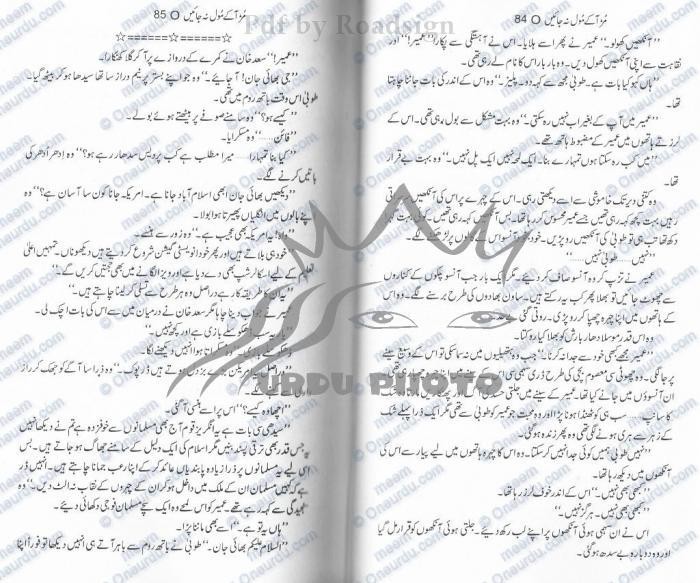 مڑ آکے مُول نہ جائیں O 84
”آنکھیں کھولو۔“ عمیر نے پھر اسے ہلایا۔ اس نے آہستگی سے پکارا ”عمیر!“ اور
نقاہت سے اپنی آنکھیں کھول دیں۔ وہ بار بار اس کا نام لے رہی تھی۔
”ہاں کہو کیا بات ہے۔ طوبیٰ مجھ سے کہہ دو۔ پلیز۔“ وہ اس کے اندر کی بات جاننا چاہتا
تھا۔
”عمیر میں آپ کے بغیر اب نہیں رہ سکتی۔“ وہ بہت مشکل سے بول پائی تھی۔ اس کے
لرزتے ہاتھوں میں عمیر کے مضبوط ہاتھ تھے۔
”میں کب رہ سکتا ہوں تمہارے بنا۔ ایک لمحہ نہیں ایک پل نہیں۔“ وہ بہت بے قرار
تھا۔
وہ کتنی دیر تک خاموشی سے اسے دیکھتی رہی۔ اس کے چہرے پر اس کی آنکھیں
رہیں بہت کچھ کہہ رہی تھیں جسے عمیر محسوس کر رہا تھا۔ بس آنکھیں کہہ رہی تھیں۔ کوئی بہت
دکھ تھا جبھی تو طوبیٰ کی آنکھیں رو پڑیں۔ آنسو اس کے گالوں پر
”نہیں ...... طوبیٰ نہیں ......“
عمیر نے تڑپ کر وہ آنسو صاف کر دیئے۔ مگر ایک بار جب آنسو پلکوں کے کناروں
سے چھوٹ جائیں تو بھلا پھر کب یہ رکتے ہیں۔ ساون بھادوں کی طرح برسنے لگے۔ وہ اس
کے ہاتھوں میں اپنا چہرہ چھپا کر رو پڑی۔ روتی گئی
وہ اس قدر موسلادھار بارش کو بھلا کیا روکتا۔
”عمیر مجھے کبھی خود سے جدا نہ کرنا۔“ جب وہ ہتھیلیوں میں نہ سما سکی تو اس کے وسیع سینے
پر جا لگی۔ وہ چھوٹی سی معصوم بچی کی طرح ڈری سہمی
ان آنسوؤں میں جانے کیا تھا۔ عمیر کے سینے میں جلتی
کا سانپ ...... سب ہی کو ٹھنڈا ہونا پڑا اور وہ محبت جو عمیر کو طوبیٰ سے تھی مگر ایک ذرا پہلے شک
کے زہر سے مری ہونے لگی تھی وہ پھر زندہ ہو گئی۔
”نہیں طوبیٰ ہمیں کوئی جدا نہیں کر سکتا۔“ وہ اس کا چہرہ ہاتھوں میں لیے پیار سے اس کی
آنکھوں میں دیکھ رہا تھا۔
”کبھی بھی نہیں۔“ اس کے اندر خوف لرز رہا تھا۔
”کبھی بھی نہیں۔ ہرگز نہیں۔“
اس نے ان سہمی ہوئی آنکھوں پر اپنے لب رکھ دیئے۔ جلتی ہوئی آنکھوں کو قرار مل گیا
اور وہ دوبارہ بے سدھ ہو گئی۔
مڑ آکے مُول نہ جائیں O 85
Pdf by Roadsign
☆======☆======☆
”عمیر!“ سعد خان نے کمرے کے دروازے پر آ کر گلا کھنکارا۔
”جی بھائی جان! آ جائیے۔“ وہ جو اپنے بستر پر نیم دراز سا تھا سیدھا ہو کر بیٹھ گیا۔
طوبیٰ اس وقت باتھ روم میں تھی۔
”کیسے ہو؟“ وہ سامنے صوفے پر بیٹھتے ہوئے بولے۔
”فائن ......“ وہ مسکرایا۔
”کیا بنا تمہارا ...... میرا مطلب ہے کب پردیس سدھار رہے ہو؟“ وہ اِدھر اُدھر کی
باتیں کرنے لگے۔
”دیکھیں بھائی جان ابھی اسلام آباد جانا ہے۔ امریکہ جانا کون سا آسان ہے؟“ وہ
اپنے بالوں میں انگلیاں پھیرتا ہوا بولا۔
”ہاہا! یہ امریکہ بھی عجیب ہے۔“ وہ زور سے ہنسے۔
خود ہی بلاتے ہیں اور پھر خود انویسٹی گیشن شروع کر دیتے ہیں دیکھو ناں۔ تمہیں اعلیٰ
تعلیم کے لیے اسکالرشپ بھی دے دیا ہے اور ویزا لگانے میں بھی حجتیں کریں گے۔“
”یہ ان کا طریقہ کار ہے دراصل وہ ہر طرح سے تسلی کر لینا چاہتے ہیں۔“
عمیر نے جواب دینا چاہا مگر سعد خان نے درمیان میں سے اس کی بات اچک لی۔
”یار یہ سب ڈھکوسلے بازی ہے اور کچھ نہیں۔“
وہ مسکراتا ہوا انہیں دیکھنے لگا۔
”دراصل یہ امریکن بڑے بزدل ہوتے ہیں ڈرپوک۔“ وہ ذرا سا آگے کو جھک کر راز
”اچھا وہ کیسے؟“ اس پر اسے ہنسی آ گئی۔
”سیدھی سی بات ہے یہ انگریز قوم آج بھی مسلمانوں سے خوفزدہ ہے تم نے دیکھا نہیں
یہ جس قدر بھی ترقی پسند بنیں مگر اسلام کی ایک دلیل کے سامنے جھاگ ہو جاتے ہیں۔ بس
اسی لیے یہ مسلمانوں پر ذرا زیادہ پابندیاں عائد کر کے اپنا رعب جمانا چاہتے ہیں۔ انہیں ڈر
ہے کہ کہیں مسلمان ان کے ملک میں داخل ہو کر ان کے چہروں کے نقاب نہ الٹ دیں۔“ وہ
سنجیدگی سے کہہ رہے تھے۔ عمیر کو اس لمحے وہ ایک سچے مسلمان فوجی دکھائی دیئے۔
”ہاں یہ تو ہے۔“ اسے بھی ماننا پڑا۔
”السلام علیکم بھائی جان۔“ طوبیٰ نے باتھ روم سے باہر آتے ہی انہیں دیکھا تو فوراً اپنا
URDU PHOTO